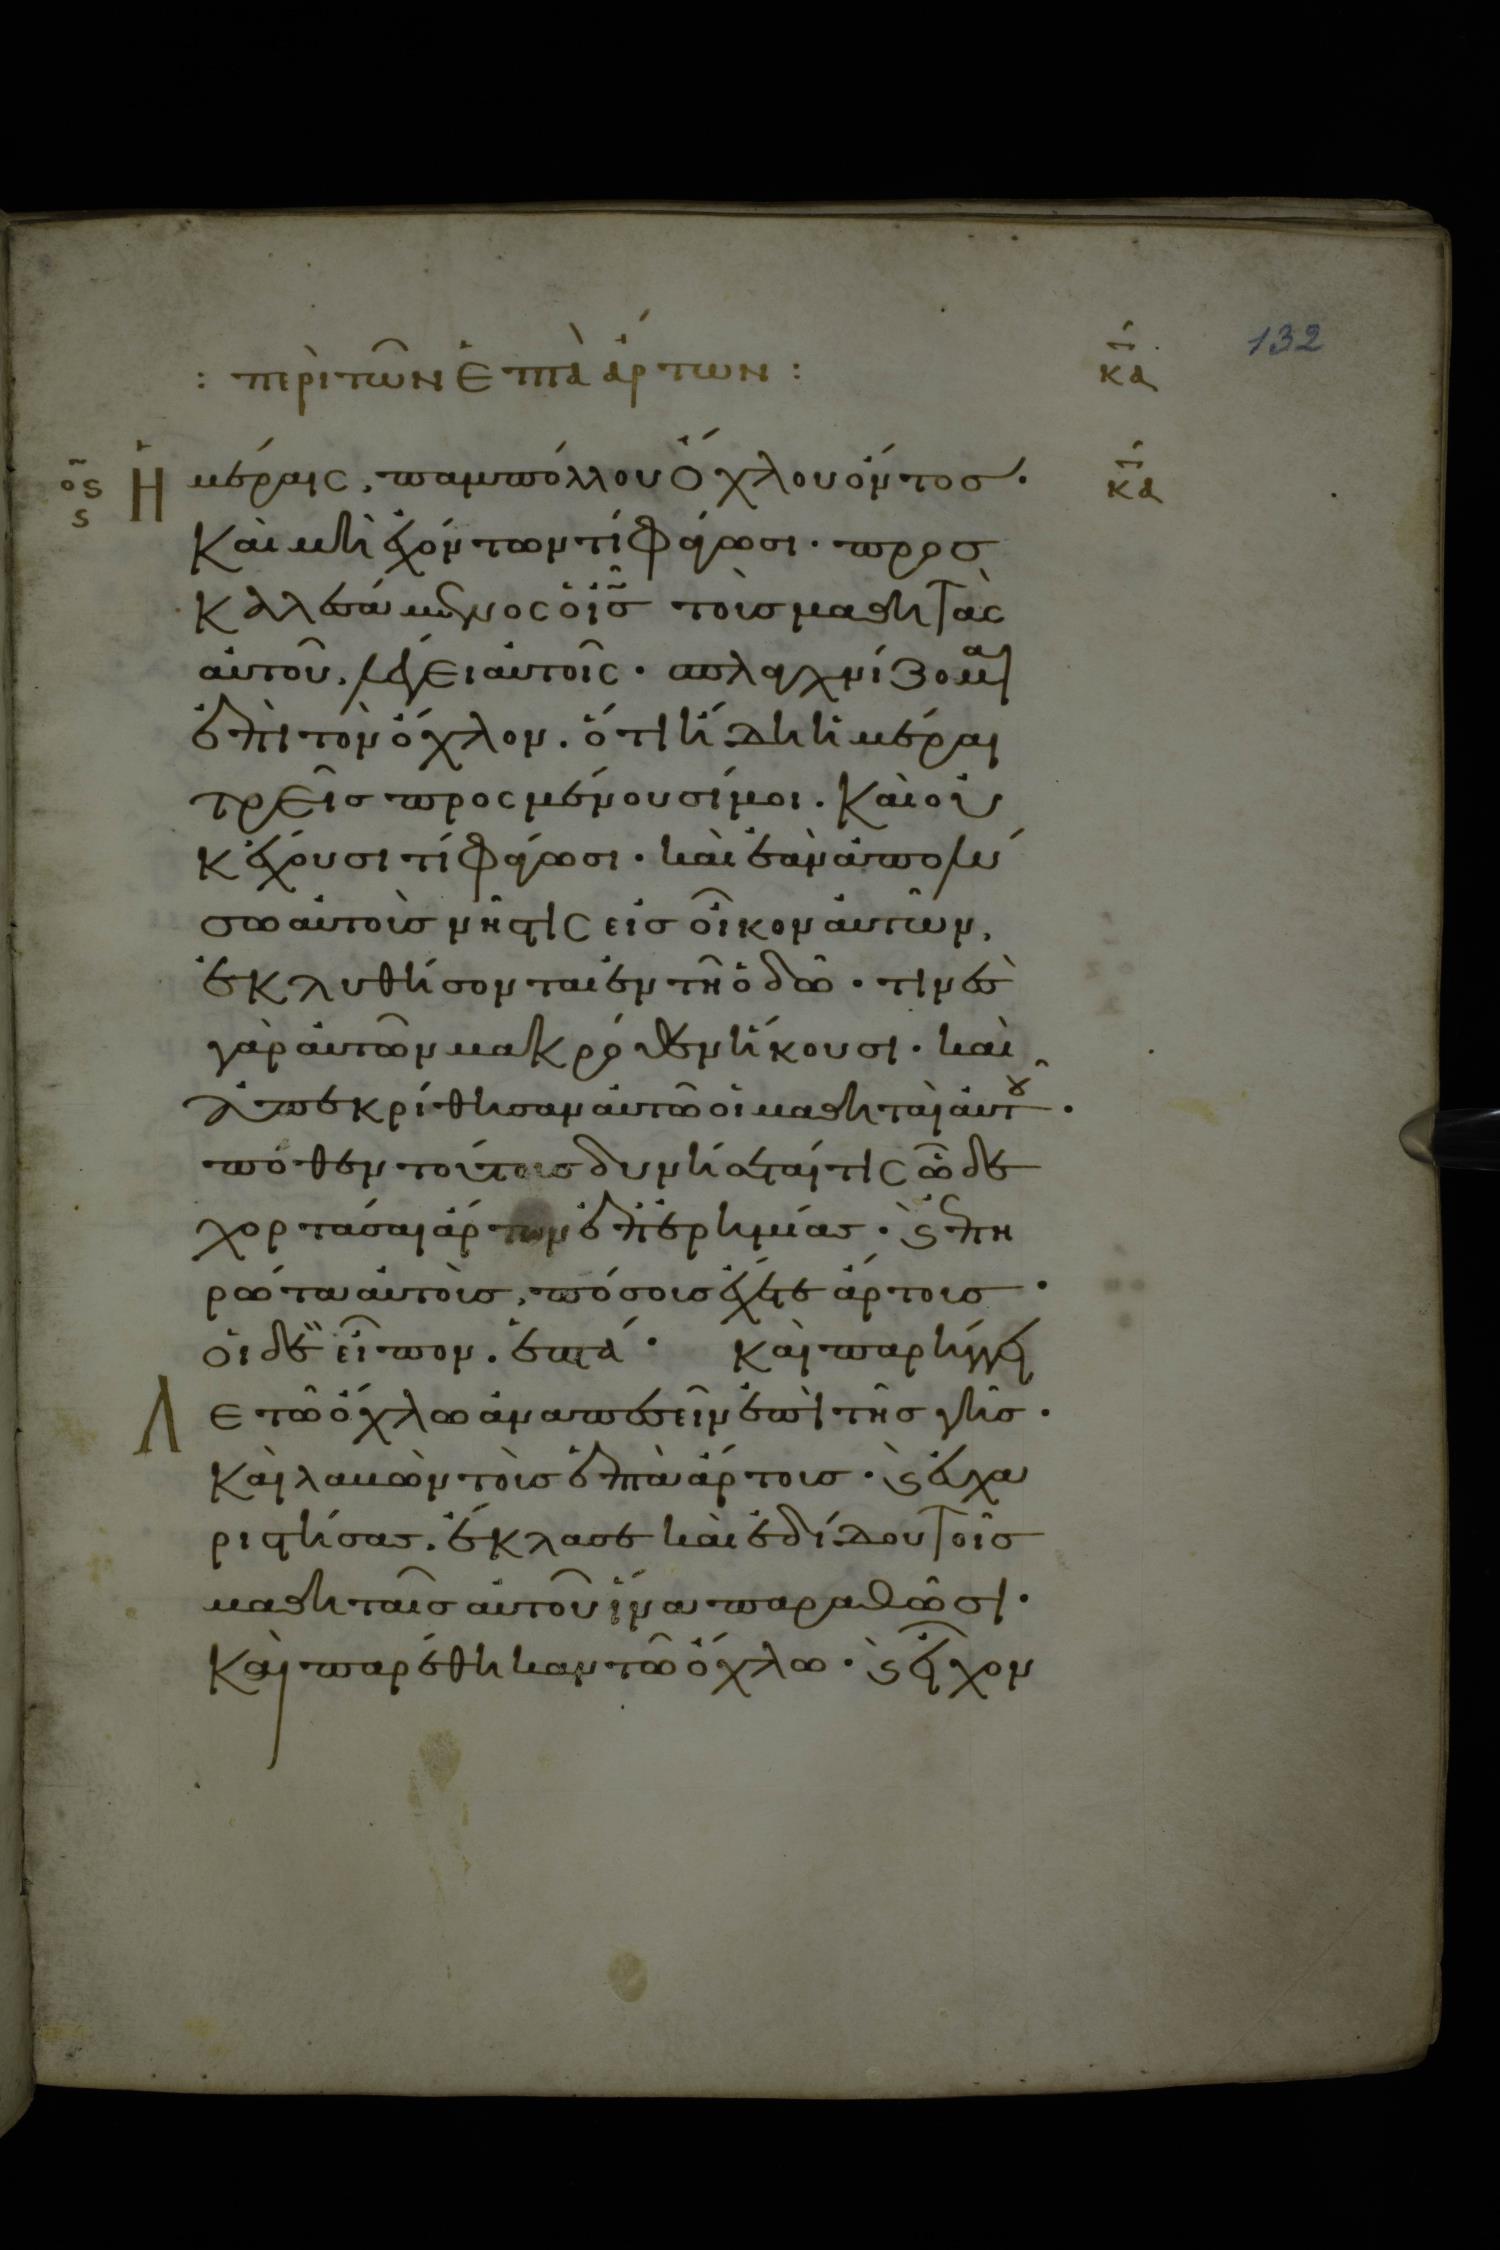 132
: περὶ τῶν ἑπτὰ ἄρτων : κα
οϛ ϛ Ἡμέραις, παμπόλλου ὄχλου ὄντος· κα
Καὶ μὴ ἐχόντων τί φάγωσι· προσ
καλεσάμενος ὁ ισ τοὺς μαθητὰς
αὐτοῦ, λέγει αὐτοῖς· σπλαγχνίζομαι
ἐπὶ τὸν ὄχλον. ὅτι ἤδη ἡμέραι
τρεῖς προσμένουσί μοι. Καὶ οὐ
κ ἔχουσι τί φάγωσι· καὶ ἐὰν ἀπολύ
σω αὐτοὺς νήστις εἰς οἶκον αὐτῶν,
ἐκλυθήσονται ἐν τῆ ὁδῶ· τινὲς
γὰρ αὐτῶν μακρόθεν ἥκουσι· καὶ
ἀπεκρίθησαν αὐτῶ οἱ μαθηταὶ αὐτοῦ·
πόθεν τούτους δυνήσεταί τις ὧδε
χορτάσαι ἄρτων ἐπ' ἐρημίας· ϛ ἐπη
ρώτα αὐτοὺς, πόσους ἔχετε ἄρτους·
οἱ δὲ εἶπον. ἑπτά· Καὶ παρήγγει
λε τῶ ὄχλω ἀναπεσεῖν ἐπὶ τῆς γῆς·
Καὶ λαβὼν τοὺς ἑπτὰ ἄρτους· ϛ εὐχα
ριστήσας. ἔκλασε καὶ ἐδίδου τοῖς
μαθηταῖς αὐτοῦ ἵνα παραθῶσι·
Καὶ παρέθηκαν τῶ ὄχλω· ϛ εἶχον